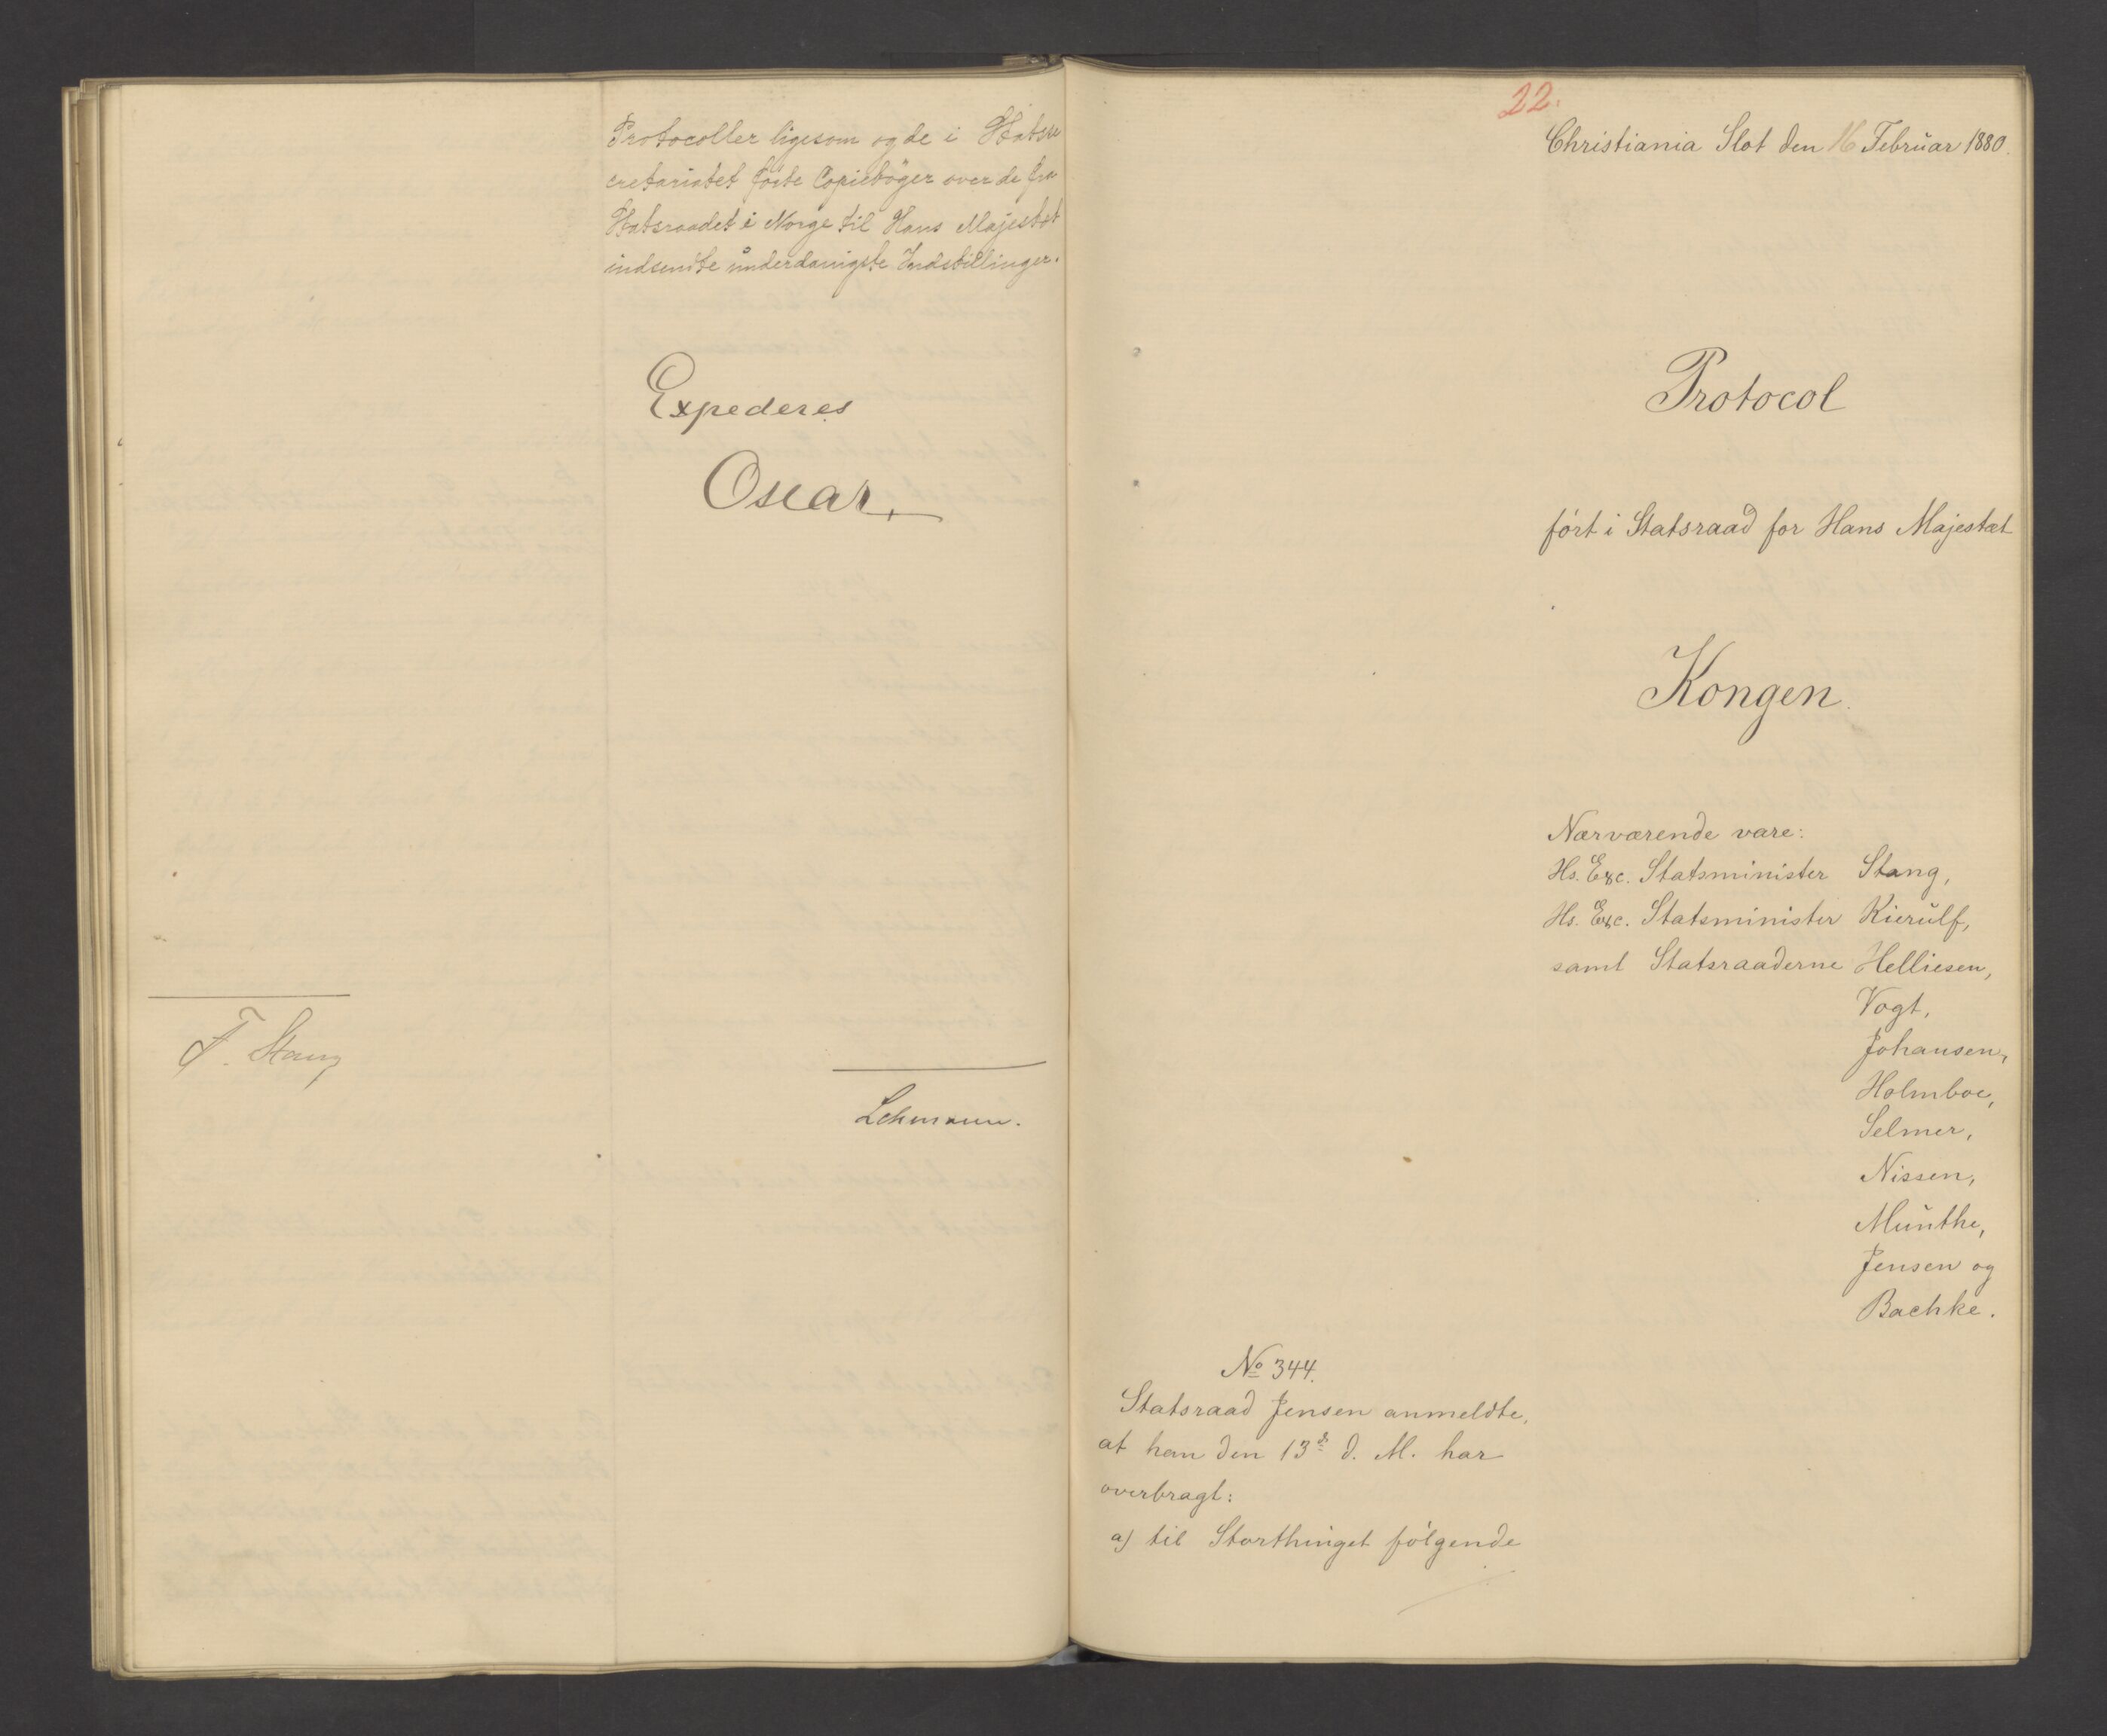 Protocoller ligesom og de i Statsse
cretariatet førte Copiebøger over de fra
Statsraadet i Norge til Hans Majestæt
indsendte underdanigste Indstillinger.
Expederes
Oscar.
F. Stang
Lehmann.
22.
Christiania Slot den 16 Februar 1880.
Protocol
ført i Statsraad for Hans Majestæt
Kongen.
Nærværende vare:
Hs. Exc. Statsminister Stang,
Hs. Exc. Statsminister Kierulf,
samt Statsraaderne Helliesen,
Vogt,
Johansen,
Holmboe,
Selmer,
Nissen,
Munthe,
Jensen og
Bachke.
No 344.
Statsraad Jensen anmeldte,
at han den 13de d. M. har
overbragt:
a) til Storthinget følgende